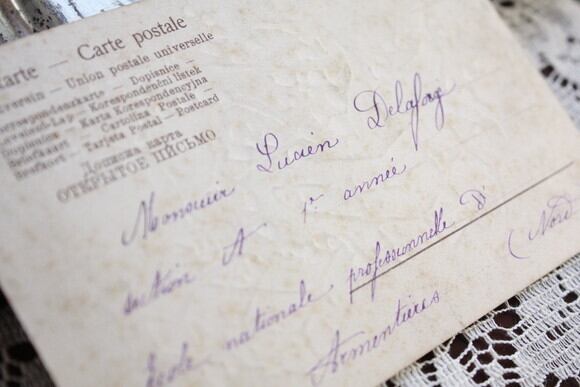 karte — Carte postale
verein — Union postale universelle
respondenzkarte — Dopisnice —
Levelező-Lap — Korespondenční listek
Dopisnica — Karta Korespondencyjna
Briefkaart — Cartolina Postale —
Brefkort — Tarjeta Postal — Postcard
Дописна карта
ОТКРЫТОЕ ПИСЬМО
Monsieur Lucien Delafoy
section A 1re année
École nationale professionnelle D'
Armentières (Nord